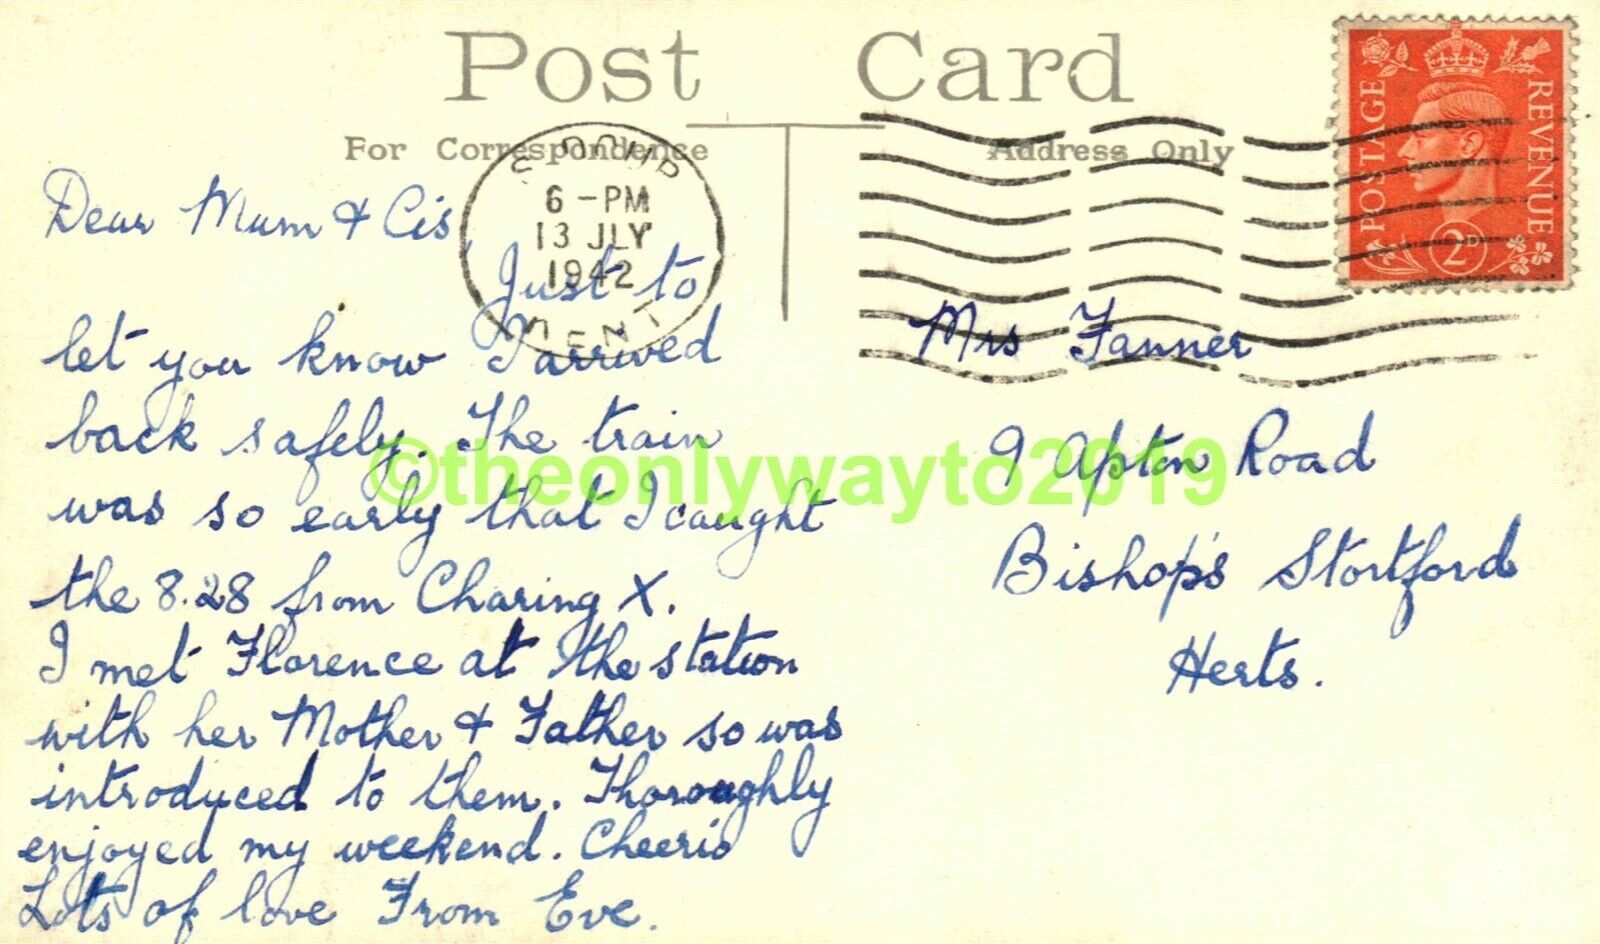 Post Card
For Correspondence
Address Only
6-PM
13 JLY
1942
KENT
POSTAGE
REVENUE
2D
Dear Mum & Cis,
Just to
let you know I arrived
back safely. The train
was so early that I caught
the 8.28 from Charing X.
I met Florence at the station
with her Mother & Father so was
introduced to them. Thoroughly
enjoyed my weekend. Cheerio
Lots of love From Eve.
Mrs Fanner
9 Apton Road
Bishop's Stortford
Herts.
©theonlywayto2019